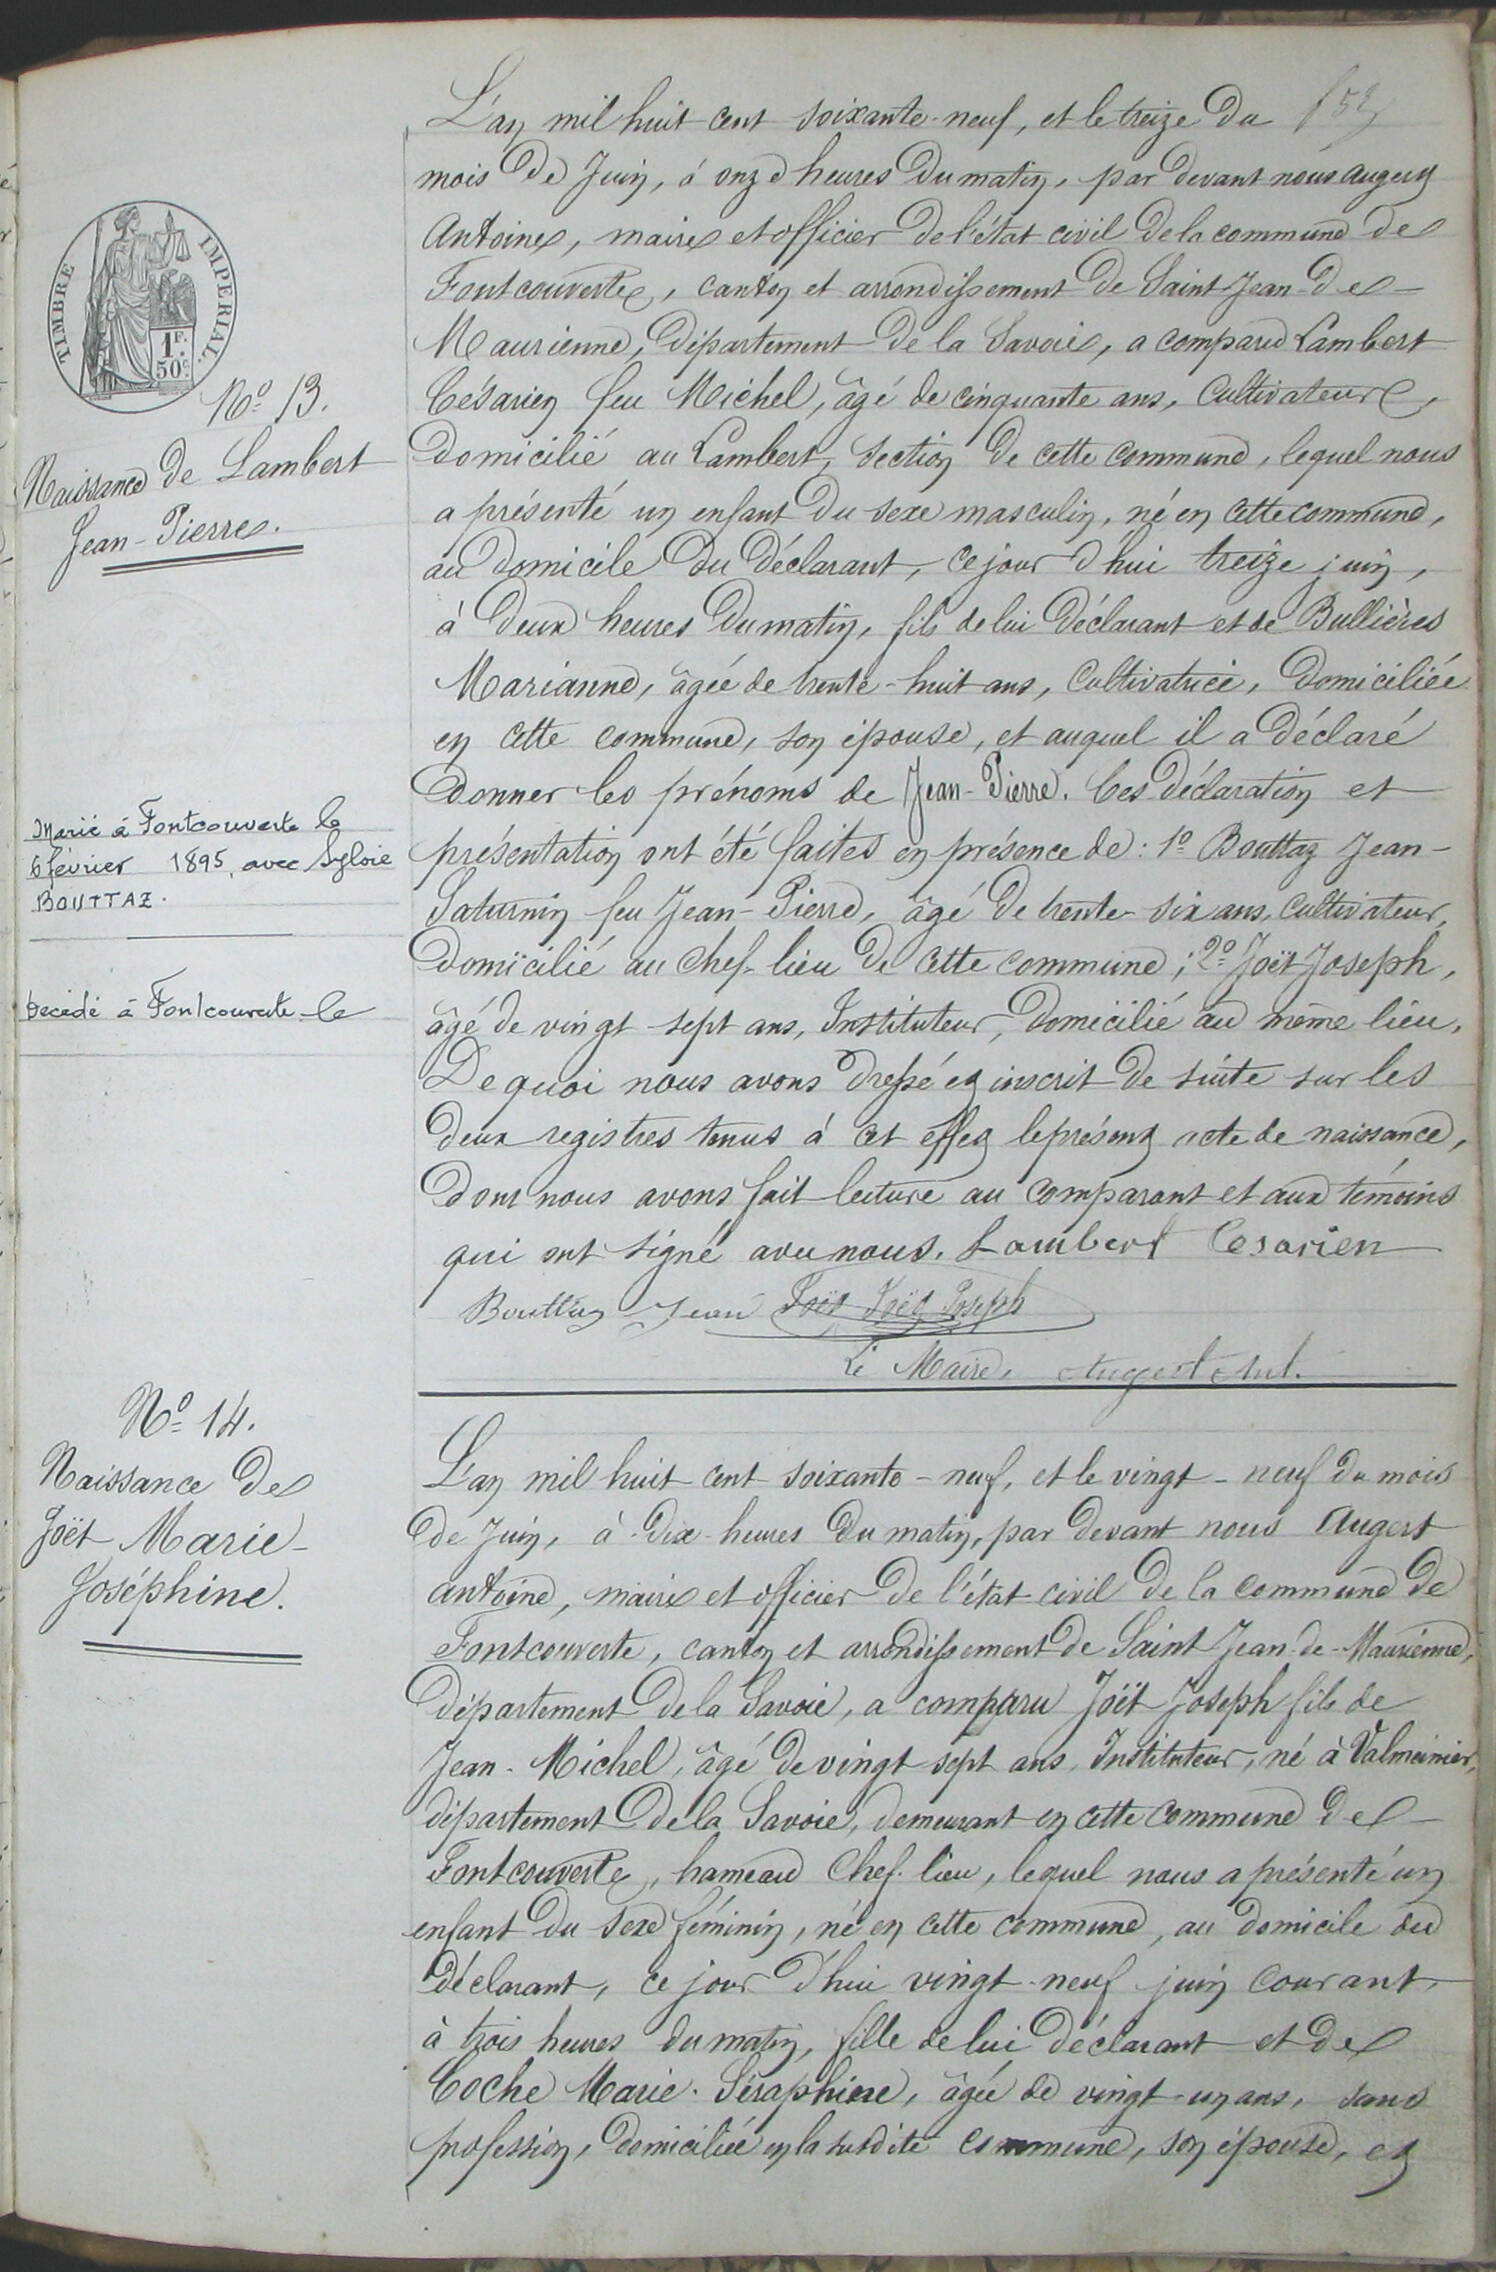 L'an mil huit cent soixante-neuf, et le treize du
mois de Juin, à onze heures du matin, par devant nous Augert
Antoine, maire et officier de l'état civil de la commune de
Fontcouverte, canton et arrondissement de Saint Jean-de-
Maurienne, département de la Savoie, a comparu Lambert
Césarien feu Michel, âgé de cinquante ans, Cultivateur,
domicilié au Lambert, section de cette commune, lequel nous
a présenté un enfant du sexe masculin, né en cette commune,
au domicile du déclarant, ce jour d'hui treize juin,
à deux heures du matin, fils de lui déclarant et de Bullières
Marianne, âgée de trente-huit ans, Cultivatrice, domiciliée
en cette commune, son épouse, et auquel il a déclaré
donner les prénoms de Jean-Pierre. Ces déclaration et
présentation ont été faites en présence de : 1º Bouttaz Jean-
Saturnin feu Jean-Pierre, âgé de trente-six ans, Cultivateur,
domicilié au Chef-lieu de cette commune ; 2º Joët Joseph,
âgé de vingt sept ans, Instituteur, domicilié au même lieu,
De quoi nous avons dressé et inscrit de suite sur les
deux registres tenus à cet effet le présent acte de naissance,
dont nous avons fait lecture au comparant et aux témoins
qui ont signé avec nous. Lambert Cesarien
Bouttaz Jean Joët Joseph
Le Maire, Augert Ant.
TIMBRE IMPERIAL.
1F.
50c.
Nº 13.
Naissance de Lambert
Jean-Pierre.
Marié à Fontcouverte le
6 février 1895, avec Sylvie
BOUTTAZ.
Décédé à Fontcouverte le
Nº 14.
Naissance de
Joët Marie-
Joséphine.
L'an mil huit cent soixante-neuf, et le vingt-neuf du mois
de Juin, à dix heures du matin, par devant nous Augert
Antoine, maire et officier de l'état civil de la commune de
Fontcouverte, canton et arrondissement de Saint Jean-de-Maurienne,
département de la Savoie, a comparu Joët Joseph fils de
Jean-Michel, âgé de vingt sept ans, Instituteur, né à Valmeinier,
département de la Savoie, demeurant en cette commune de
Fontcouverte, hameau Chef-lieu, lequel nous a présenté un
enfant du sexe féminin, né en cette commune, au domicile du
déclarant, ce jour d'hui vingt-neuf juin courant,
à trois heures du matin, fille de lui déclarant et de
Coche Marie-Séraphine, âgée de vingt-un ans, sans
profession, domiciliée en la susdite commune, son épouse, et